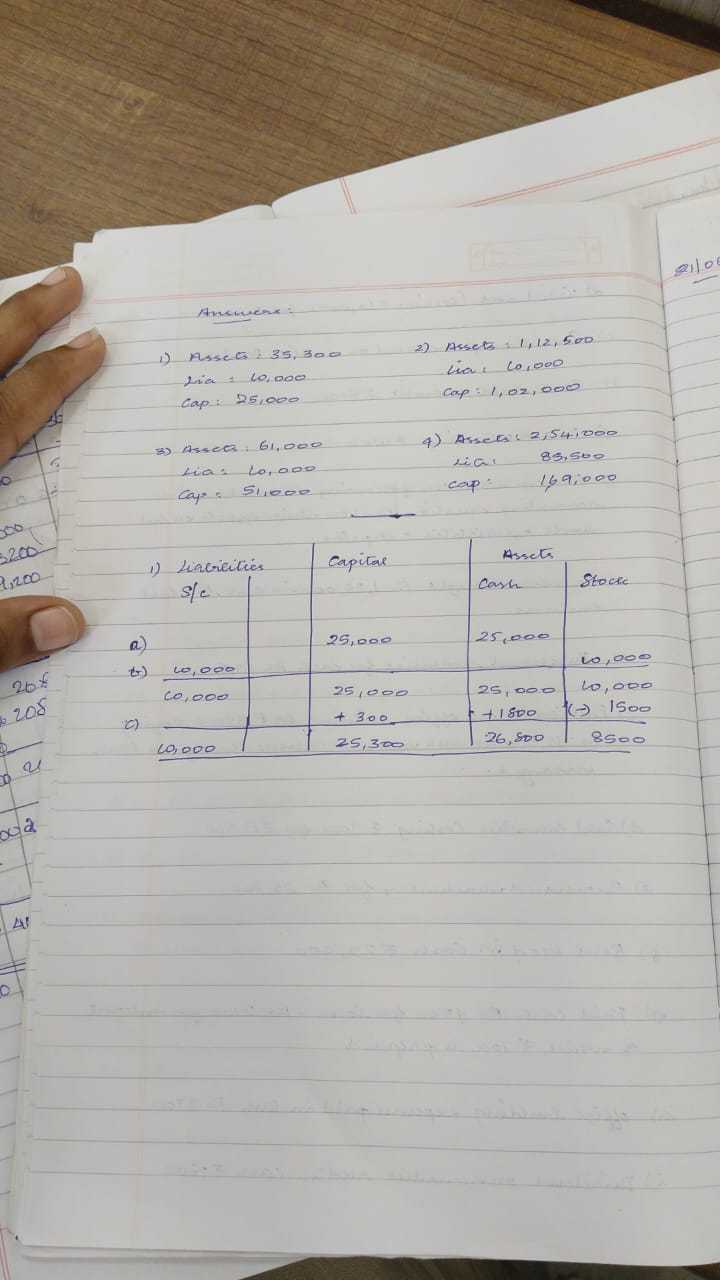 Answers :
1) Assets : 35,300
Lia : 10,000
Cap : 25,000
2) Assets : 1,12,500
Lia : 10,000
Cap : 1,02,000
3) Assets : 61,000
Lia : 10,000
Cap : 51,000
4) Assets : 2,54,000
Lia : 85,500
Cap : 169,000
1) Liabilities Capital Assets
S/c Cash Stock
a) 25,000 25,000
b) 10,000 10,000
10,000 25,000 25,000 10,000
c) + 300 +1800 (-) 1500
10,000 25,300 26,800 8500
21/0
3200
9,200
208
208
002